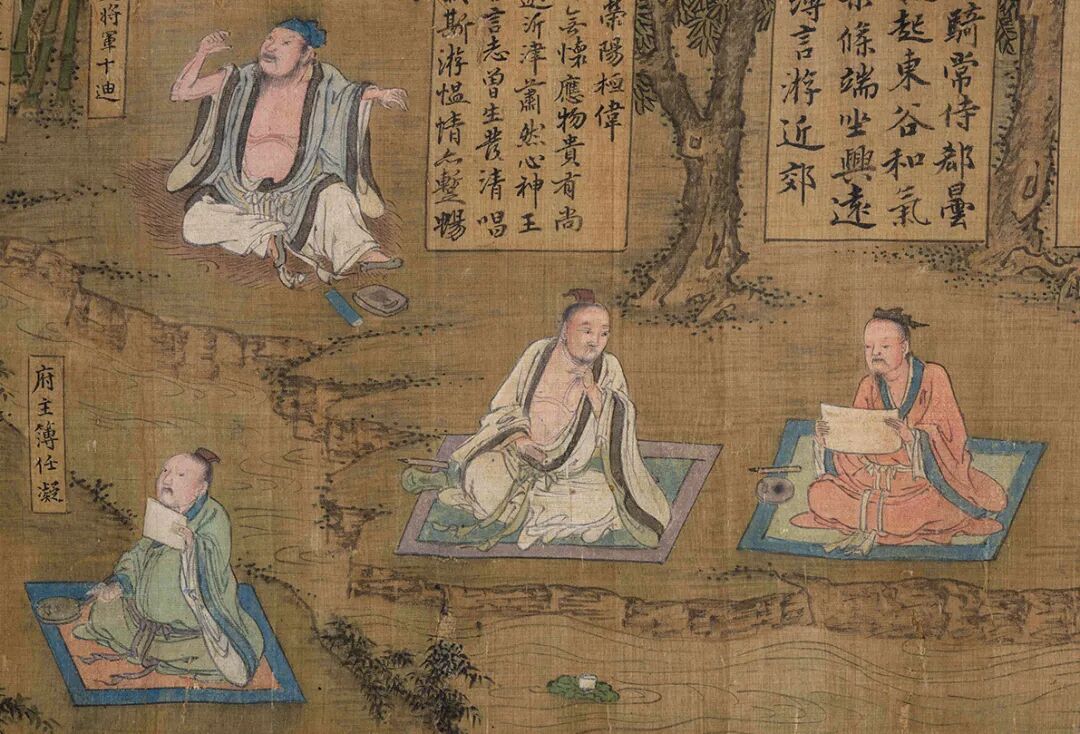 騎常侍郗曇
起東谷和氣
條端坐興遠
言游近郊
榮陽桓偉
懷應物貴有尚
沂津蕭然心神王
言志曾生發清唱
斯游愠情亦蹔暢
將軍十迪
府主簿任凝